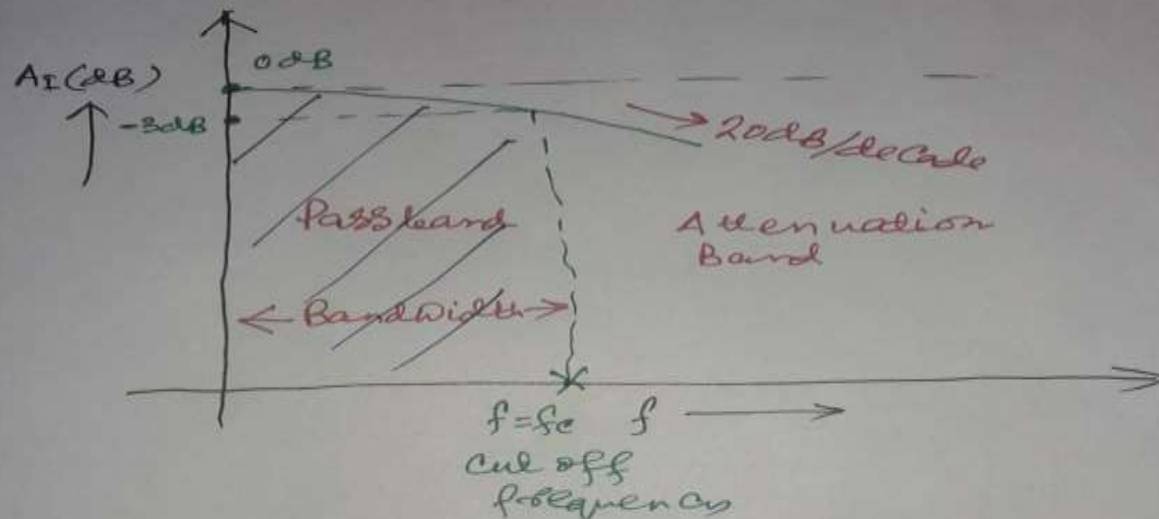 0dB
AI(dB)
-3dB
20dB/decade
Passband
Attenuation
Band
Bandwidth
f=fc f
cut off
frequency